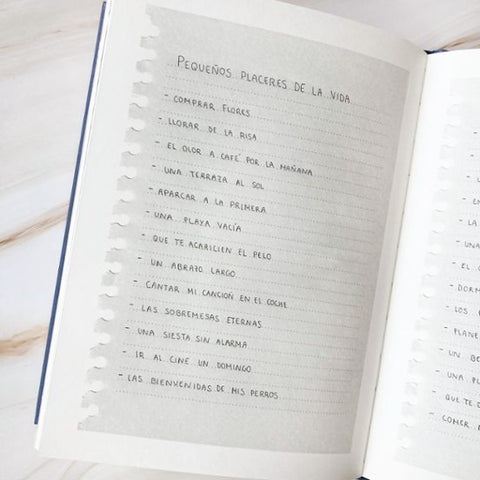 PEQUEÑOS PLACERES DE LA VIDA
- COMPRAR FLORES
- LLORAR DE LA RISA
- EL OLOR A CAFÉ POR LA MAÑANA
- UNA TERRAZA AL SOL
- APARCAR A LA PRIMERA
- UNA PLAYA VACÍA
- QUE TE ACARICIEN EL PELO
- UN ABRAZO LARGO
- CANTAR MI CANCIÓN EN EL COCHE
- LAS SOBREMESAS ETERNAS
- UNA SIESTA SIN ALARMA
- IR AL CINE UN DOMINGO
- LAS BIENVENIDAS DE MIS PERROS
- LA
- UNA
- EL
- LOS
- UN
- UNA
- QUE TE
- COMER